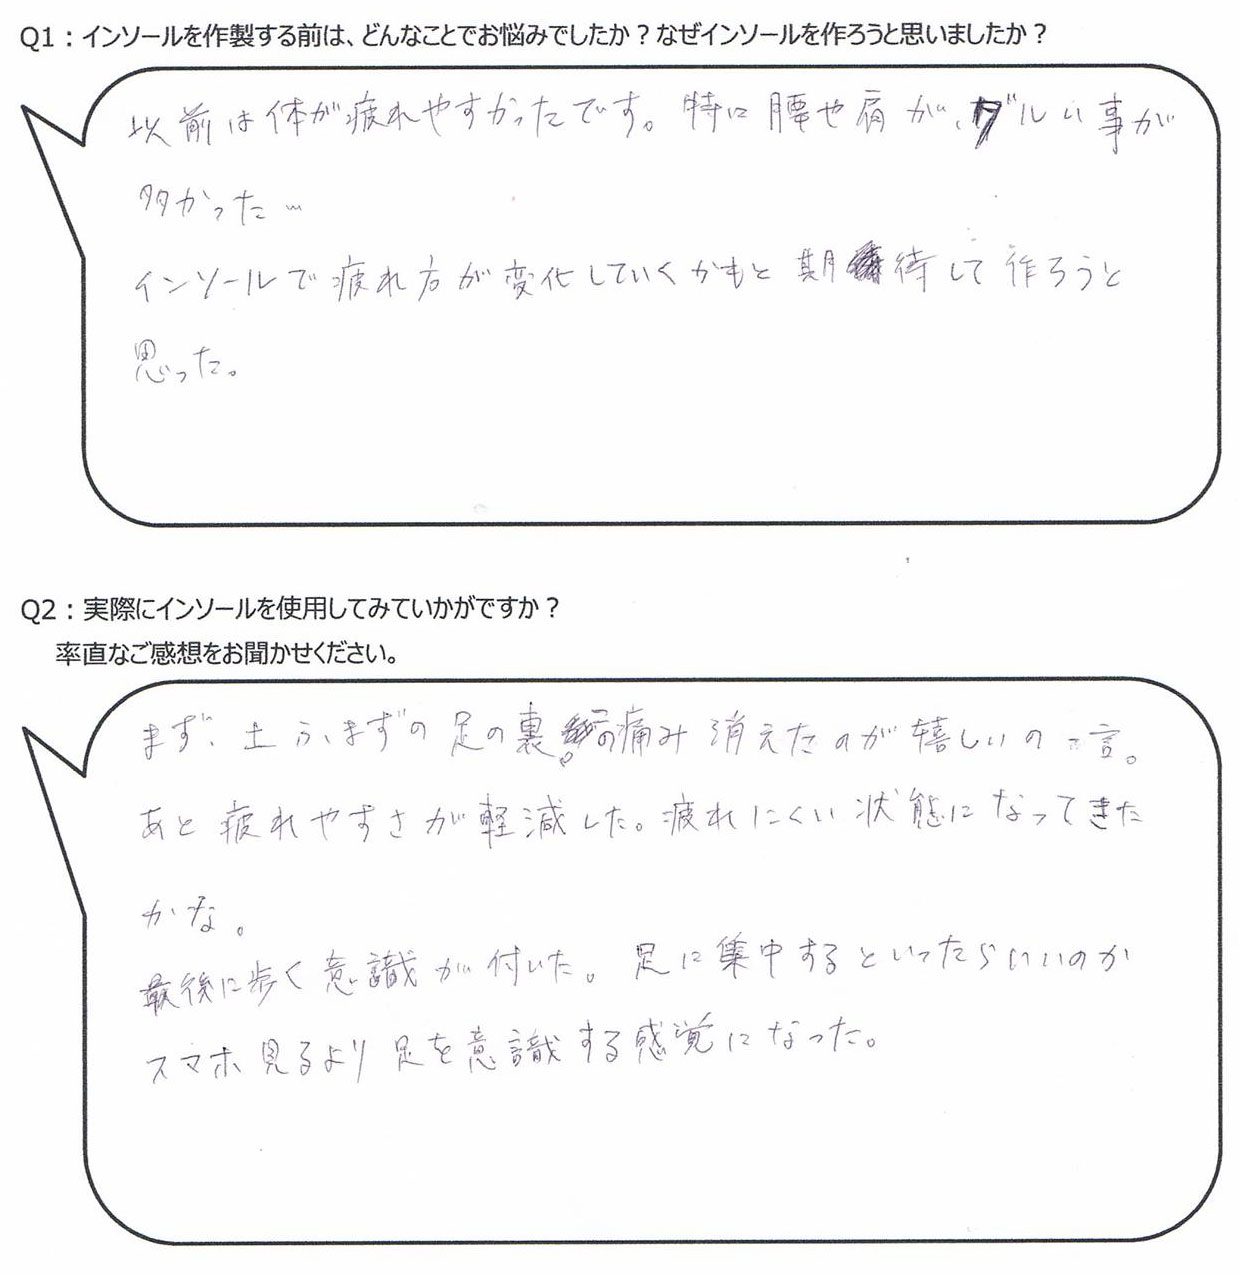 Q1：インソールを作製する前は、どんなことでお悩みでしたか？なぜインソールを作ろうと思いましたか？
以前は体が疲れやすかったです。特に腰や肩が、ダルい事が
多かった…
インソールで疲れ方が変化していくかもと期待して作ろうと
思った。
Q2：実際にインソールを使用してみていかがですか？
率直なご感想をお聞かせください。
まず、土ふまずの足の裏の痛み消えたのが嬉しいの一言。
あと疲れやすさが軽減した。疲れにくい状態になってきた
かな。
最後に歩く意識が付いた。足に集中するといったらいいのか
スマホ見るより足を意識する感覚になった。